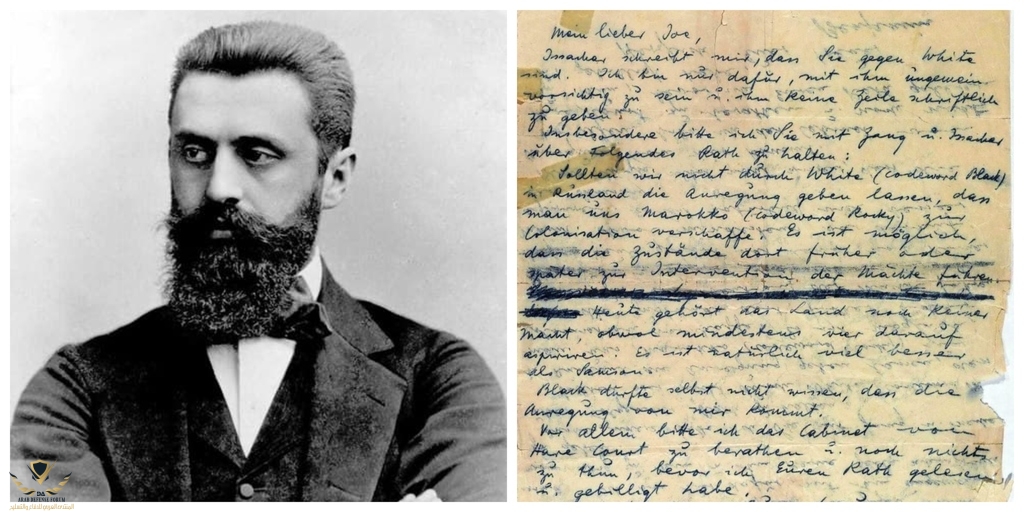 Mein lieber Joe,
Issachar schreibt mir, dass Sie gegen White
sind. Ich bin nur dafür, mit ihm ungemein
vorsichtig zu sein u. ihm keine Zeile schriftlich
zu geben.
Insbesondere bitte ich Sie mit Zang u Issachar
über Folgendes Rath zu halten:
Sollten wir nicht durch White (Codeword Black)
in Russland die Anregung geben lassen, das
man uns Marokko (Codeword Rocky) zur
Colonisation verschaffe. Es ist möglich,
dass die Zustände dort früher oder
später zur Intervention der Mächte führen
Heute gehört das Land noch keiner
Macht, obwol mindestens vier darauf
aspiriren. Es ist natürlich viel besser
als Samson
Black dürfte selbst nicht wissen, dass die
Anregung von mir kommt.
Vor allem bitte ich das Cabinet von
Hare Court zu berathen u. noch nichts
zu thun, bevor ich Euren Rath gelesen
u. gebilligt habe.
DA
ARAB DEFENSE FORUM